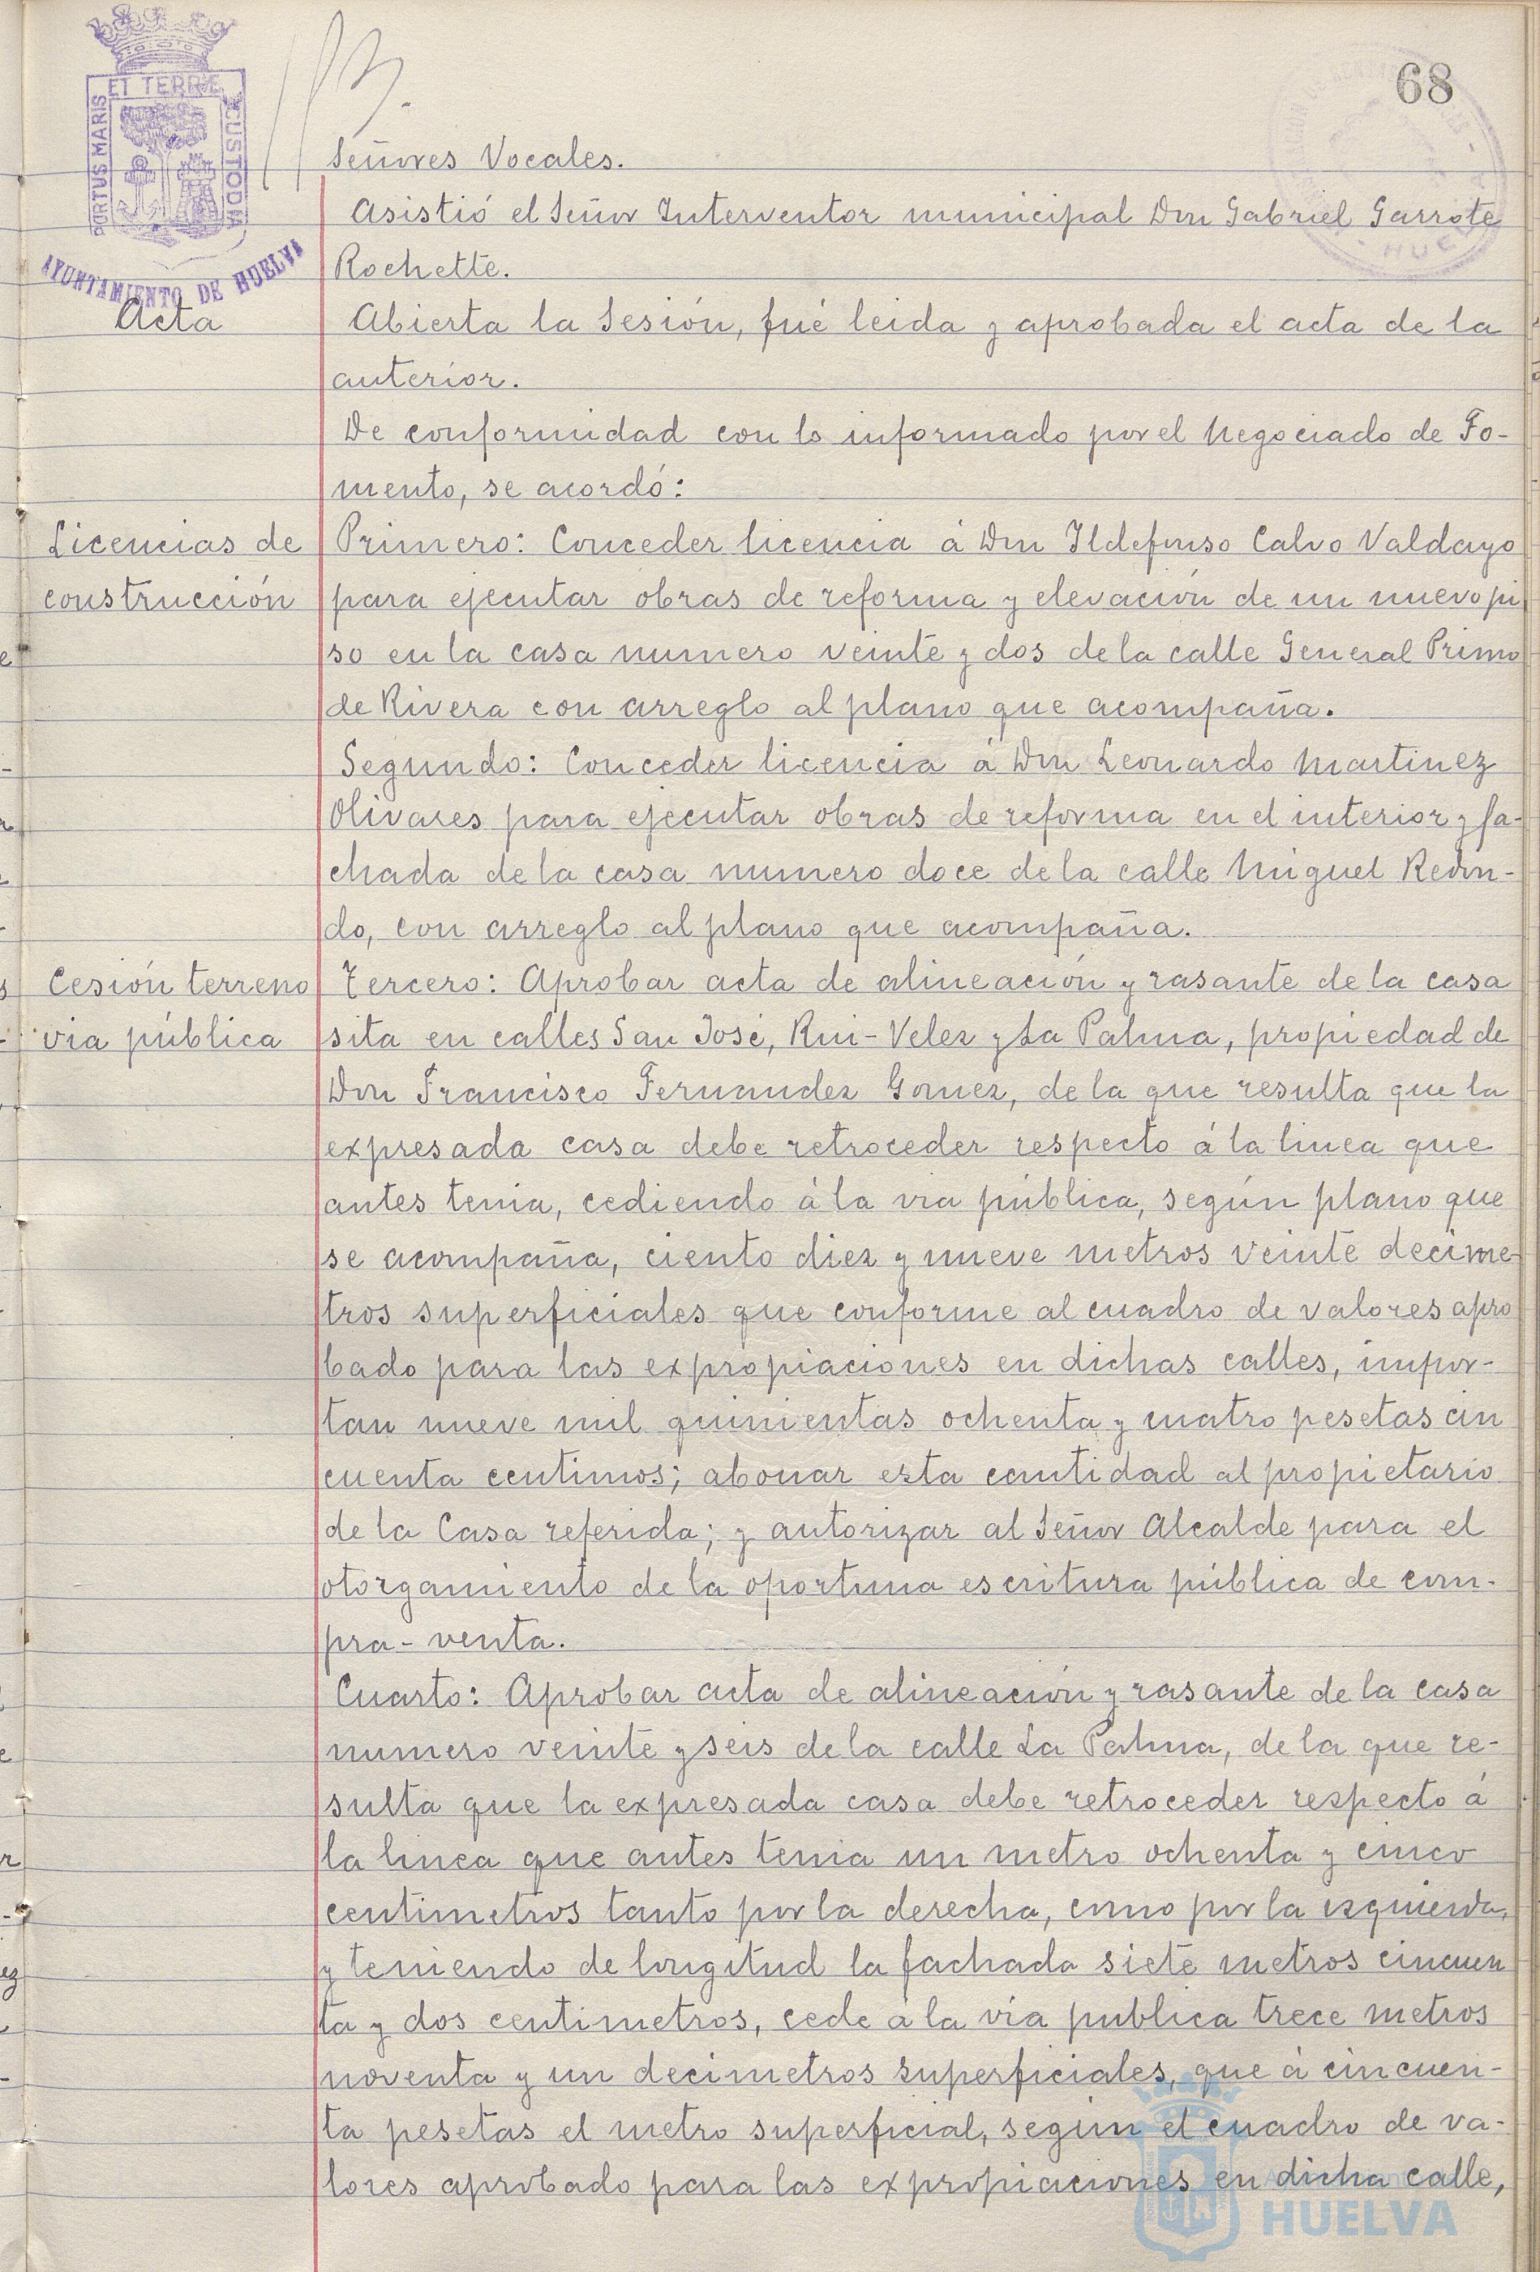 68
PORTUS MARIS ET TERRÆ CUSTODIA
AYUNTAMIENTO DE HUELVA
Señores Vocales.
Asistió el Señor Interventor municipal Don Gabriel Garrote
Rochette.
Acta
Abierta la Sesión, fué leida y aprobada el acta de la
anterior.
De conformidad con lo informado por el Negociado de Fo-
mento, se acordó:
Licencias de
construcción
Primero: Conceder licencia á Don Ildefonso Calvo Valdayo
para ejecutar obras de reforma y elevación de un nuevo pi
so en la casa numero veinte y dos de la calle General Primo
de Rivera con arreglo al plano que acompaña.
Segundo: Conceder licencia á Don Leonardo Martinez
Olivares para ejecutar obras de reforma en el interior y fa-
chada de la casa numero doce de la calle Miguel Redon-
do, con arreglo al plano que acompaña.
Cesión terreno
via pública
Tercero: Aprobar acta de alineación y rasante de la casa
sita en calles San José, Rui-Velez y La Palma, propiedad de
Don Francisco Fernandez Gomez, de la que resulta que la
expresada casa debe retroceder respecto á la linea que
antes tenia, cediendo á la via pública, según plano que
se acompaña, ciento diez y nueve metros veinte decime-
tros superficiales que conforme al cuadro de valores apro
bado para las expropiaciones en dichas calles, impor-
tan nueve mil quinientas ochenta y cuatro pesetas cin
cuenta centimos; abonar esta cantidad al propietario
de la Casa referida; y autorizar al Señor Alcalde para el
otorgamiento de la oportuna escritura pública de com-
pra-venta.
Cuarto: Aprobar acta de alineación y rasante de la casa
numero veinte y seis de la calle La Palma, de la que re-
sulta que la expresada casa debe retroceder respecto á
la linea que antes tenia un metro ochenta y cinco
centimetros tanto por la derecha, como por la izquierda,
y teniendo de longitud la fachada siete metros cincuen
ta y dos centimetros, cede á la vía publica trece metros
noventa y un decimetros superficiales, que á cincuen-
ta pesetas el metro superficial, según el cuadro de va-
lores aprobado para las expropiaciones en dicha calle,
HUELVA